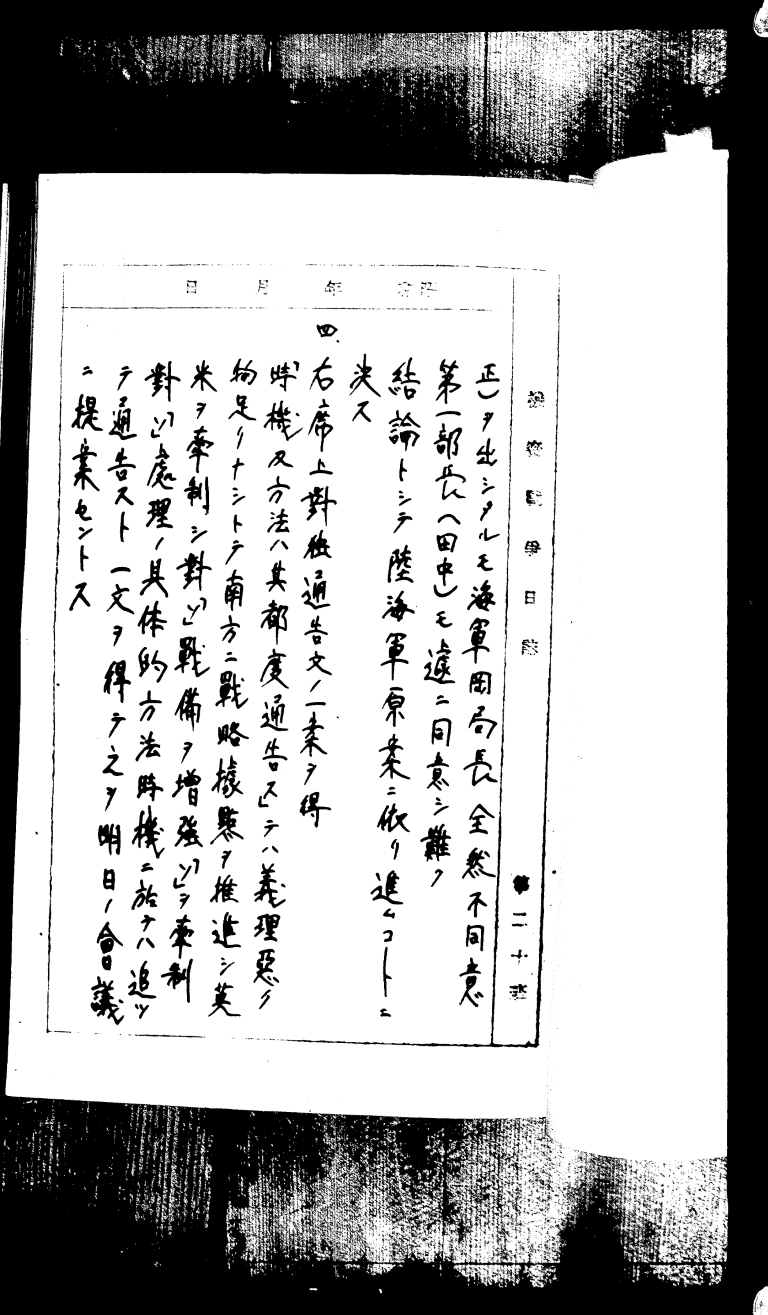 機密戰爭日誌
第二十班
昭和 年 月 日
正)ヲ出シタルモ海軍岡局長全然不同意
第一部長(田中)モ遽ニ同意シ難ク
結論トシテ陸海軍原案ニ依リ進ムコトニ
決ス
四、右席上對獨通告文ノ一案ヲ得
「時機及方法ハ其都度通告ス」テハ義理惡ク
物足リナシトテ南方ニ戰略據點ヲ推進シ英
米ヲ牽制シ對「ソ」戰備ヲ増強「ソ」ヲ牽制
對「ソ」處理ノ具体的方法時機ニ於テハ追ツ
テ通告スト一文ヲ得テ之ヲ明日ノ會議
ニ提案セントス